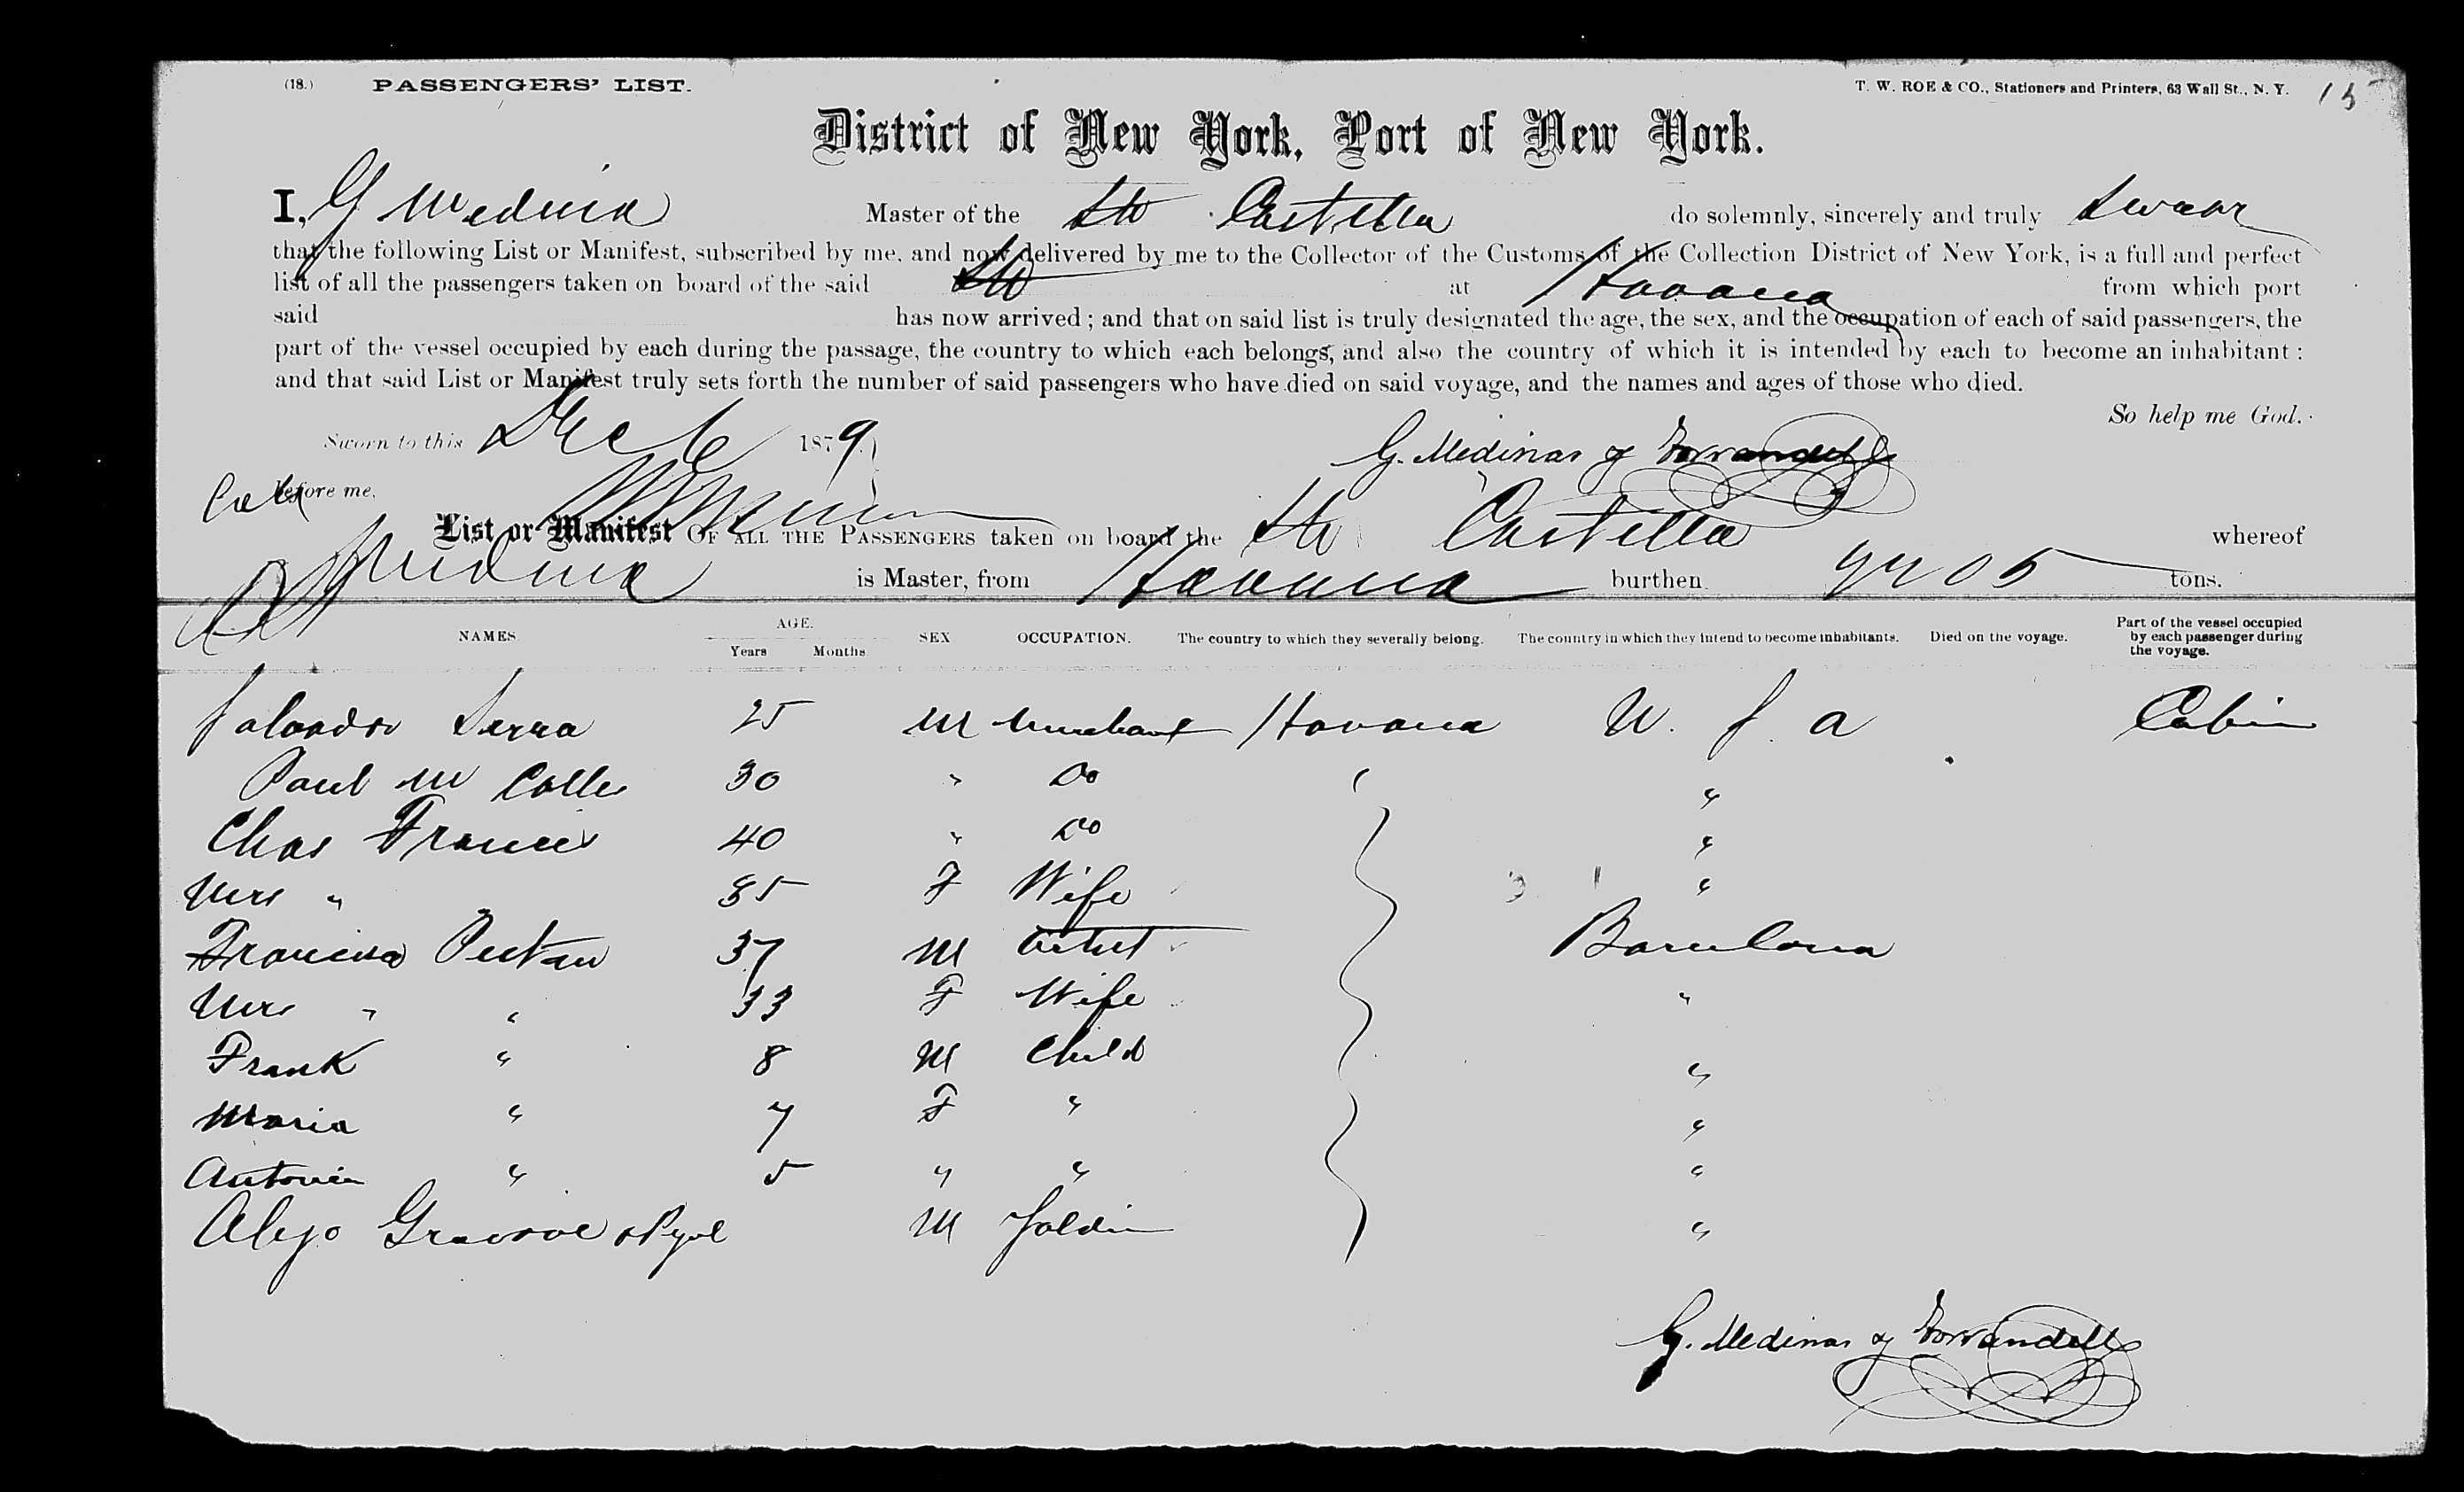 (18.) PASSENGERS' LIST. T. W. ROE & CO., Stationers and Printers, 63 Wall St., N. Y. 15
District of New York, Port of New York.
I, G Medina Master of the Str Castilla do solemnly, sincerely and truly swear
that the following List or Manifest, subscribed by me, and now delivered by me to the Collector of the Customs of the Collection District of New York, is a full and perfect
list of all the passengers taken on board of the said Str at Havana from which port
said has now arrived; and that on said list is truly designated the age, the sex, and the occupation of each of said passengers, the
part of the vessel occupied by each during the passage, the country to which each belongs, and also the country of which it is intended by each to become an inhabitant:
and that said List or Manifest truly sets forth the number of said passengers who have died on said voyage, and the names and ages of those who died.
So help me God.
Sworn to this Dec 6 1879.
G. Medinas y
Before me,
List or Manifest OF ALL THE PASSENGERS taken on board the Str Castilla whereof
G Medina is Master, from Havana burthen tons.
NAMES. AGE. Years Months SEX OCCUPATION. The country to which they severally belong. The country in which they intend to become inhabitants. Died on the voyage. Part of the vessel occupied by each passenger during the voyage.
Salvador Serra 25 M Merchant Havana U. S. A Cabin
Paul M 30 " Do "
Chas Francis 40 " Do "
Mrs " 35 F Wife "
37 M Artist Barcelona
Mrs " " 33 F Wife "
Frank " 8 M Child "
Maria " 7 F " "
Antonia " 5 " " "
Alejo M Soldier "
G. Medinas y